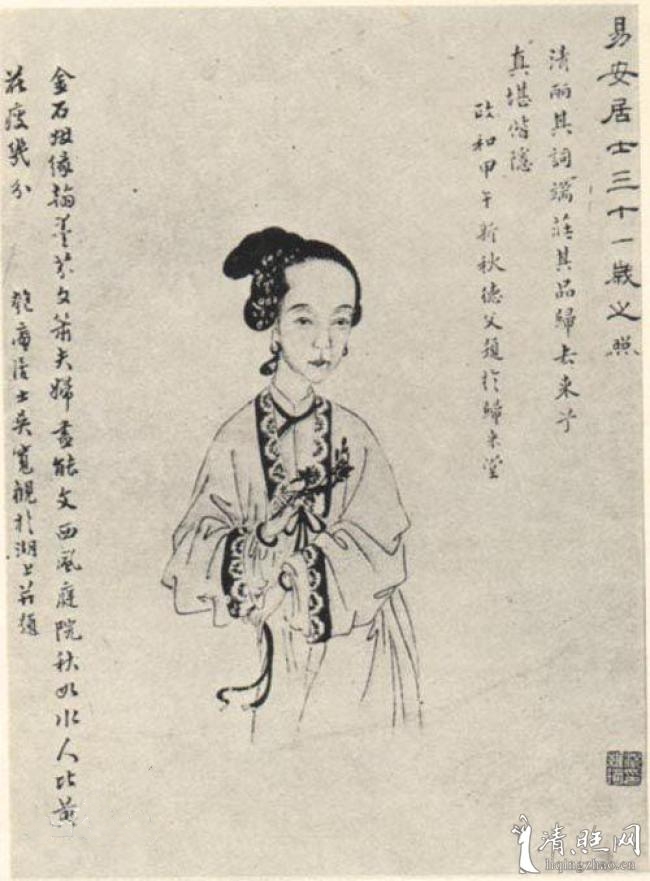 易安居士三十一歲之照
清丽其詞端莊其品歸去来乎
真堪偕隱
政和甲午新秋德父題於歸来堂
金石姻缘翰墨芬文簫夫婦盡能文西風庭院秋如水人比黄
花瘦幾分
匏庵居士吴寬觀於湖上并題
清照网
liqingzhao.cn